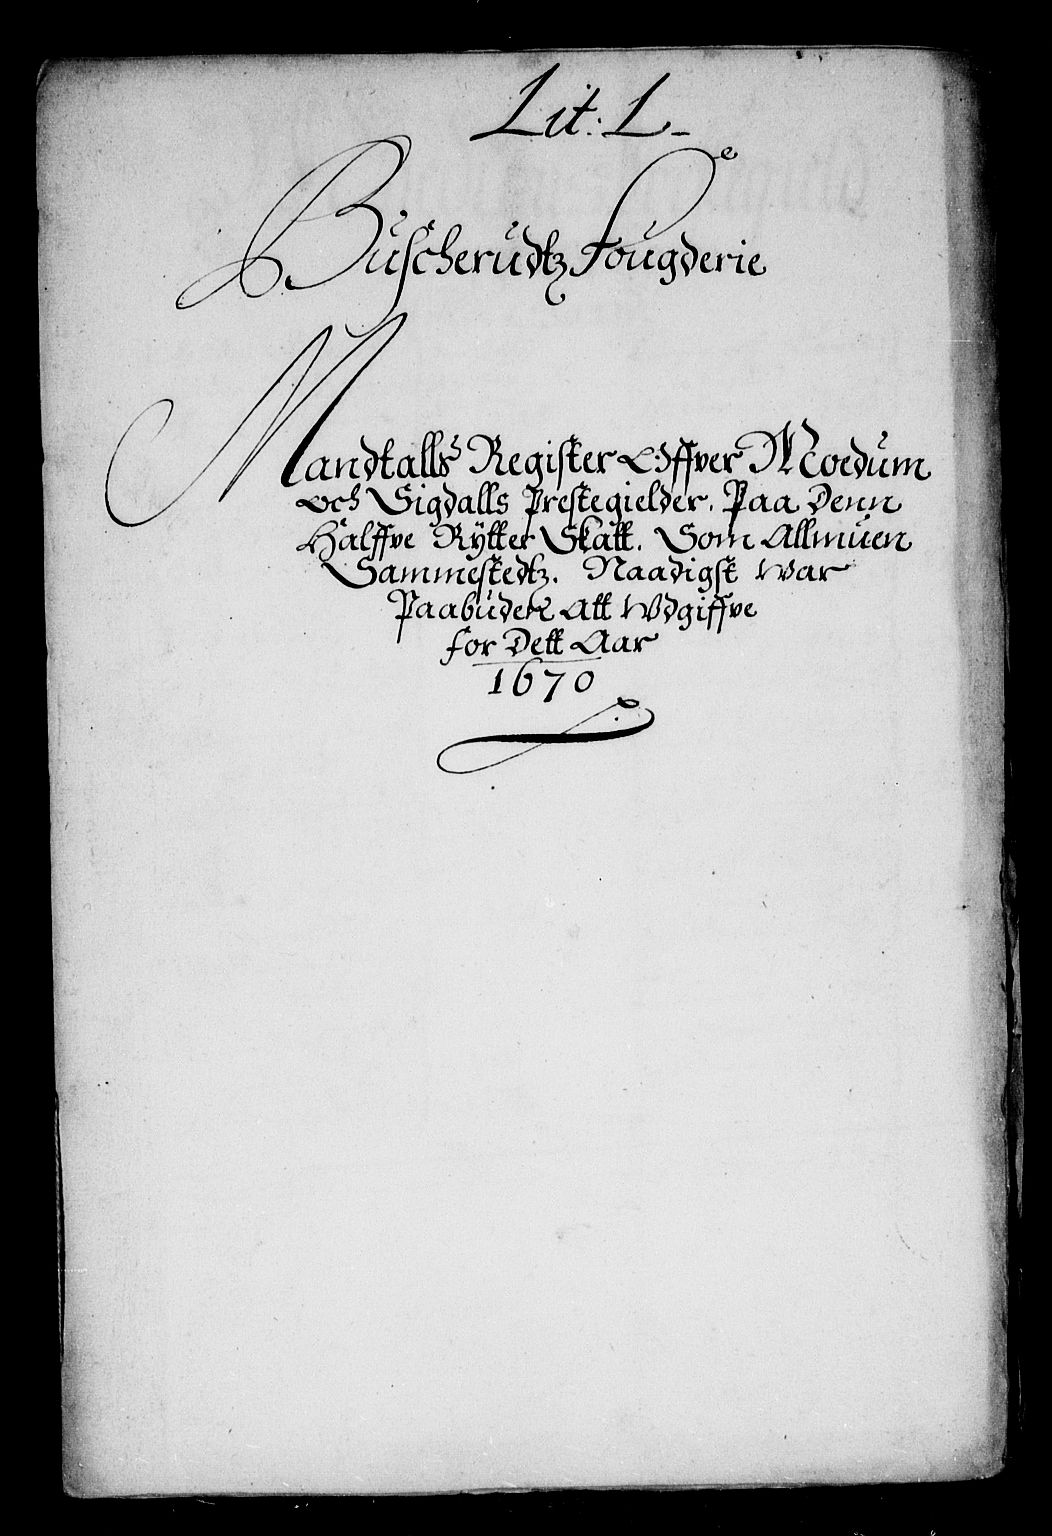 Lit: L
Buscherudtz Fougderie
Mandtalls Register Offver Moedum
och Sigdalls Prestegielder. Paa Denn
Halffve Rytter Skatt. Som Allmuen
Sammestedtz. Naadigst War
Paabuden Att Wdgiffve
for Dett Aar
1670